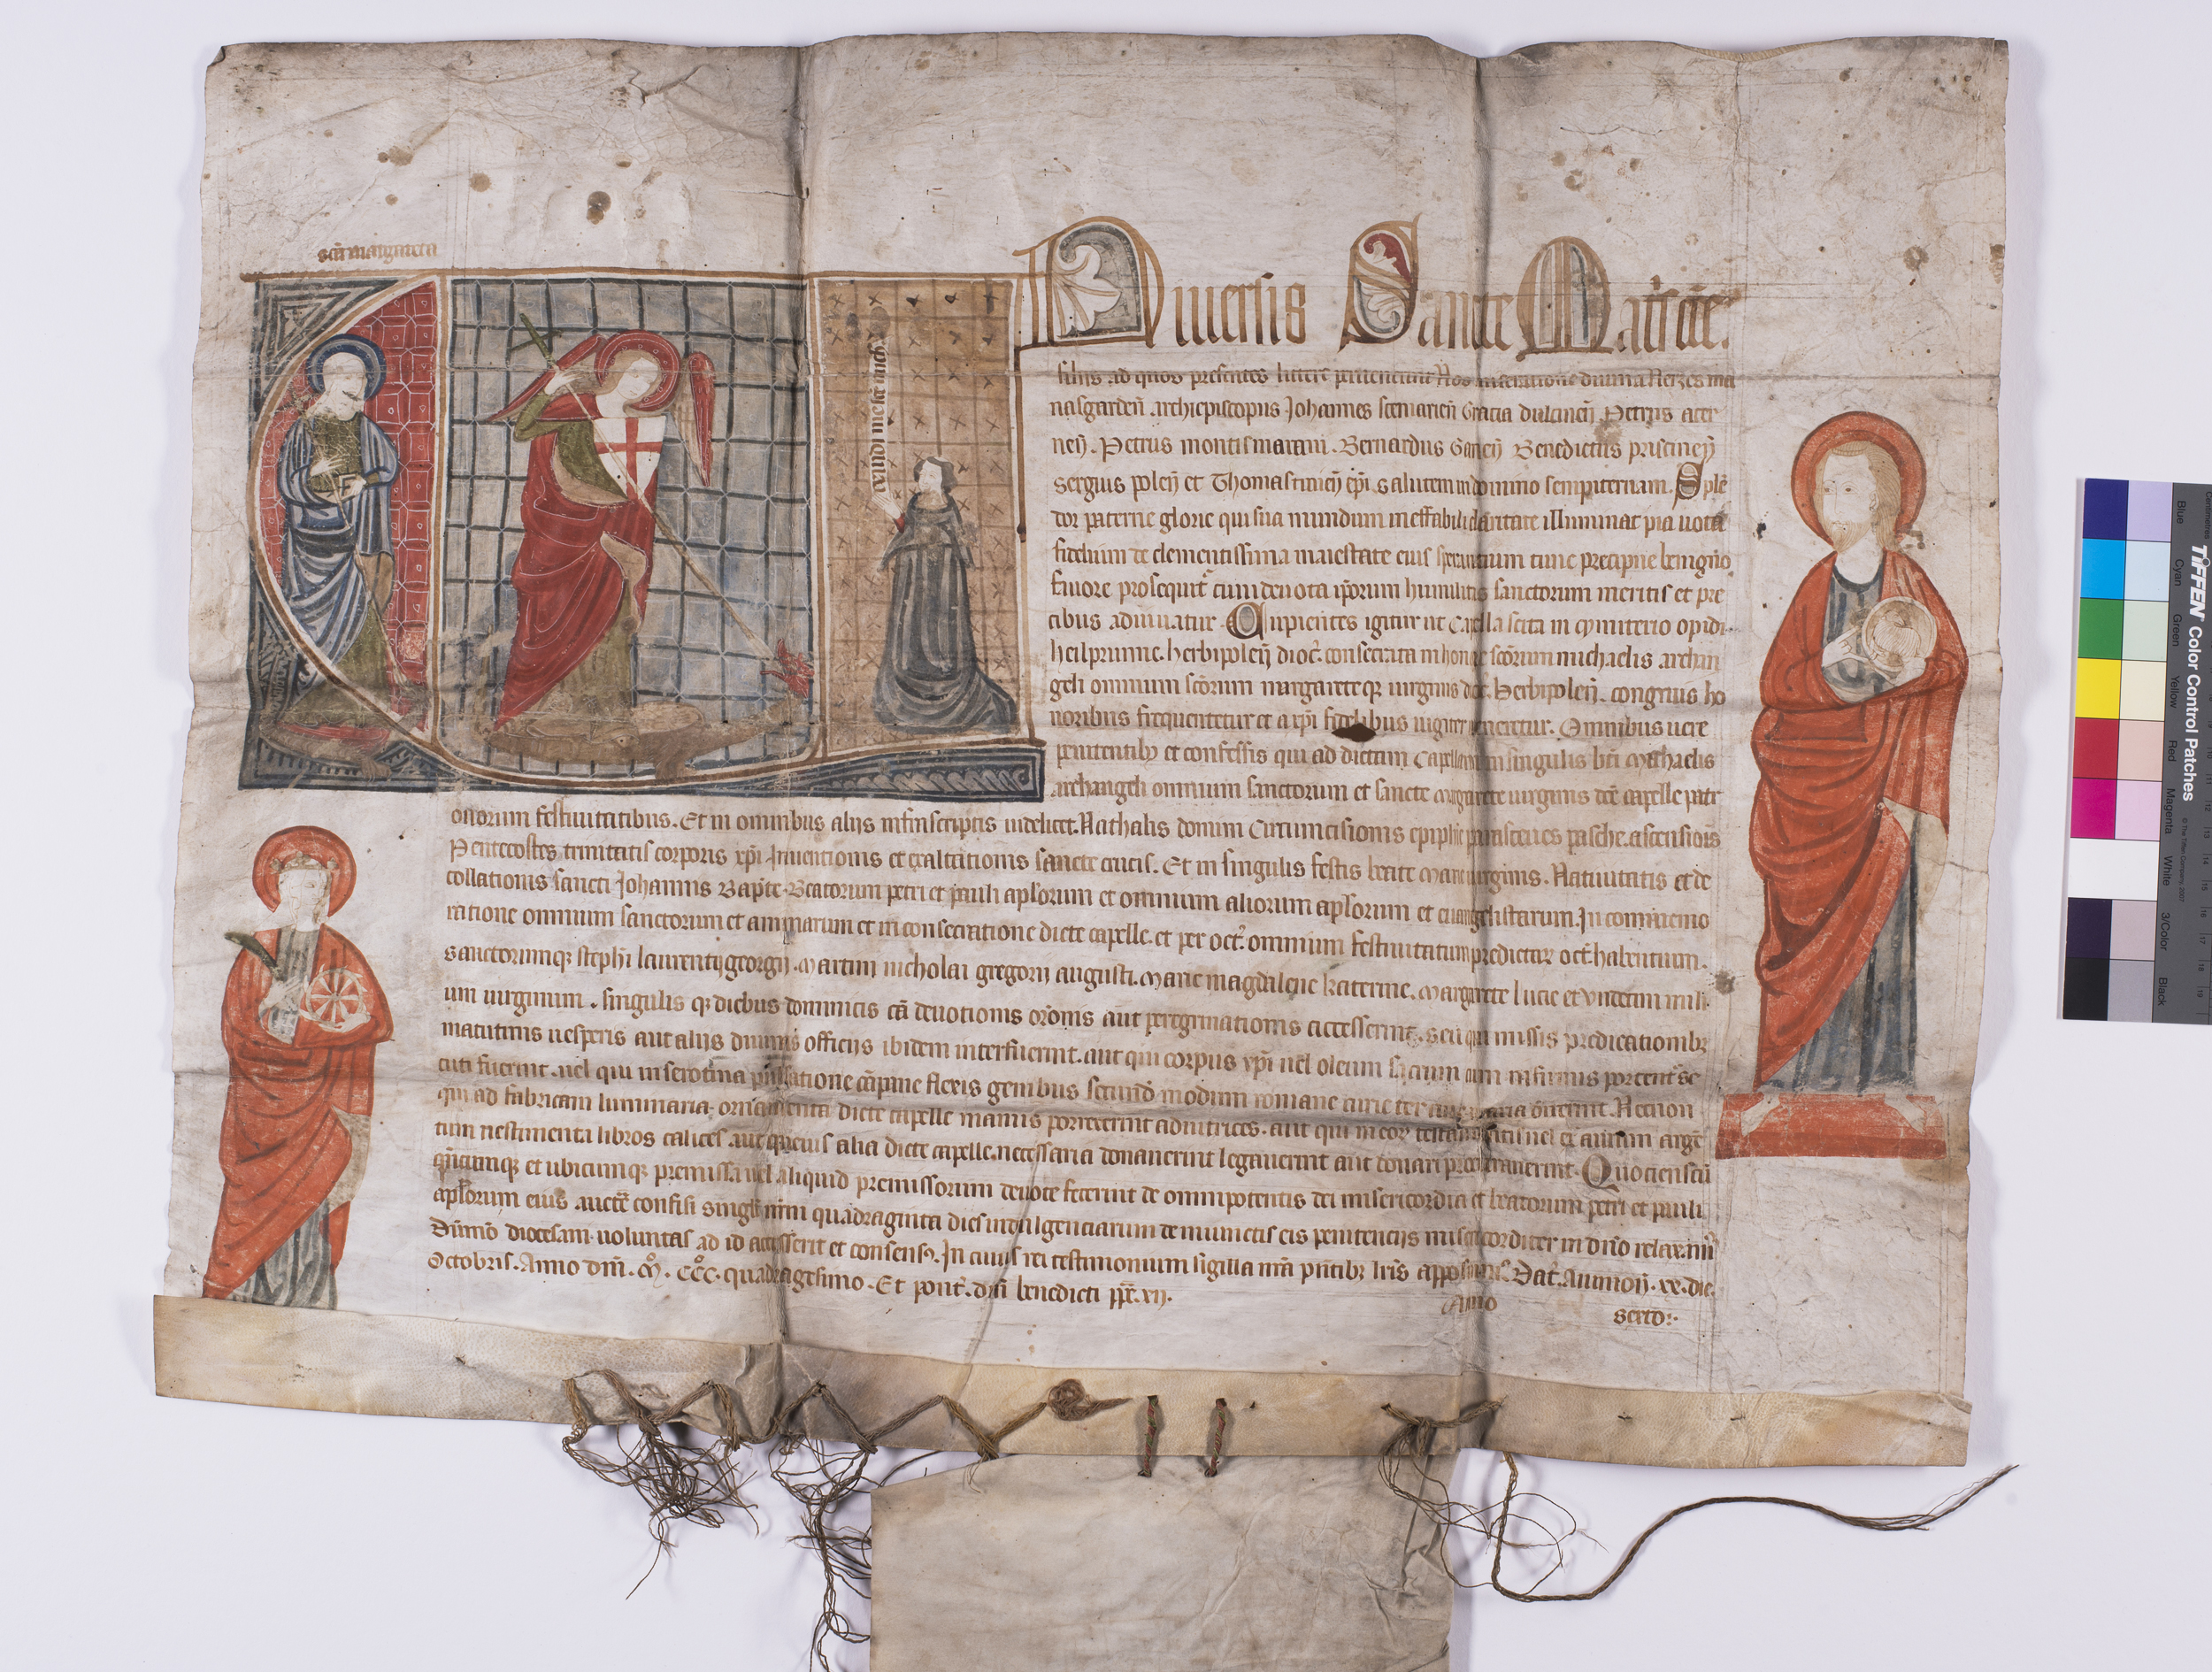 sca margareta
exaudi me sce mich
Niuersis Sancte Matris ecce.
filiis ad quos presentes littere peruenerint Nos miseratione diuina Nerzes ma
nasgarden̄ archiepiscopus Johannes scemarien̄ Gracia dulcinen̄ Petrus acer
nen̄. Petrus montismarani. Bernardus Ganen̄ Benedictus priscinen̄
sergius polen̄ et Thomas tinien̄ ep̄i salutem in domino sempiternam. Splē
dor paterne glorie qui sua mundum ineffabili claritate illuminat pia uota
fidelium de clementissima maiestate eius sperantium tunc precipue benigno
fauore prosequit᷑ cum deuota ip̄orum humilitas sanctorum meritis et pre
cibus adiuuatur. Cupientes igitur ut Capella scita in cymiterio opidi
heilprunne. herbipolen̄ dioc̄. consecrata in honore sc̄orum michaelis archan
geli omnium sc̄orum margareteqꝫ uirginis dc̄e. herbipolen̄. congruis ho
noribus frequentetur et a xp̄i fidelibus iugiter ueneretur. Omnibus uere
penitentibꝫ et confessis qui ad dictam Capellam in singulis bt̄i Michaelis
archangeli omnium sanctorum et sancte margarete uirginis dc̄e capelle patr
onorum festiuitatibus. Et in omnibus aliis infrascriptis uidelicet. Nathalis domini Circumcisionis epiphīe parasceues pasche. ascensiōis
Pentecostes trinitatis corporis xp̄i Inuentionis et exaltationis sancte crucis. Et in singulis festis beate Marie uirginis. Natiuitatis et de
collationis sancti Johannis Bap̄te. Beatorum petri et pauli ap̄lorum et omnium aliorum ap̄lorum et euangelistarum. In commemo
ratione omnium sanctorum et animarum et in consecratione dicte capelle. et per oct̄. omnium festiuitatum predictaꝝ oct̄. habentium.
sanctorumqꝫ steph̄i laurentij georgij. Martini nicholai gregorii augusti. Marie magdalene katerine. Margarete lucie et Vndecim mili
um uirginum. singulis qꝫ diebus dominicis cā deuotionis or̄onis aut peregrinationis accesserint. seu qui missis predicationibꝫ
matutinis uesperis aut aliis diuinis officiis ibidem interfuerint. aut qui corpus xp̄i uel oleum sacrum cum infirmis portent᷑ se
cuti fuerint. uel qui in serotina pulsatione cāpane flexis genibus secund̄ modum romane curie ter aue maria dixerint. Necnon
qui ad fabricam luminaria. ornamenta dicte capelle manus porrexerint adiutrices. aut qui in eoꝝ testamentis uel ex aurum argē
tum uestimenta libros calices. aut queuis alia dicte capelle. necessaria donauerint legauerint aut donari procurauerint. Quocienscū
qn̄cumqꝫ et ubicumqꝫ premissa uel aliquid premissorum deuote fecerint de omnipotentis dei misericordia et beatorum petri et pauli
ap̄lorum eius auctē confisi singli nrm̄ quadraginta dies indulgenciarum de iniunctis eis penitenciis misericorditer in dn̄o relax. dum̄
Dum̄o diocesani uoluntas ad id accesserit et consensꝰ. In cuius rei testimonium sigilla nrā pn̄tibꝫ lrīs apposuimꝰ. Dat̄. Auinion̄. xx. die.
Octobris. Anno dn̄i. M. CCC. quadragesimo. Et pont̄. dn̄i benedicti pp̄e. xii.
Anno sexto:·
TIFFEN Color Control Patches
© The Tiffen Company, 2007
Blue Cyan Green Yellow Red Magenta White 3/Color Black